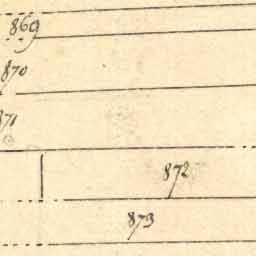 869
870
871
872
873